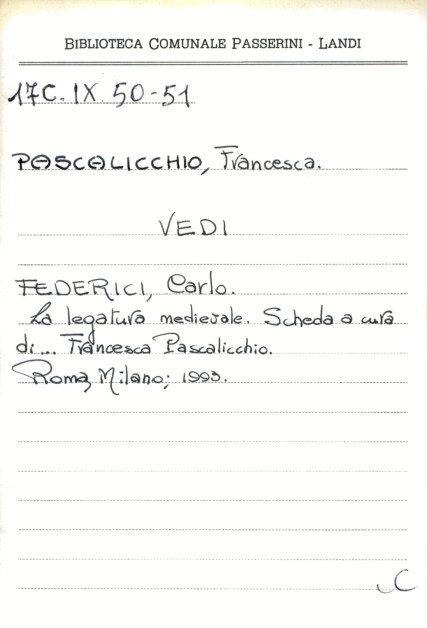 BIBLIOTECA COMUNALE PASSERINI - LANDI
17C. IX 50-51
PASCALICCHIO, Francesca.
VEDI
FEDERICI, Carlo.
La legatura medievale. Scheda a cura
di... Francesca Pascalicchio.
Roma, Milano; 1993.
C